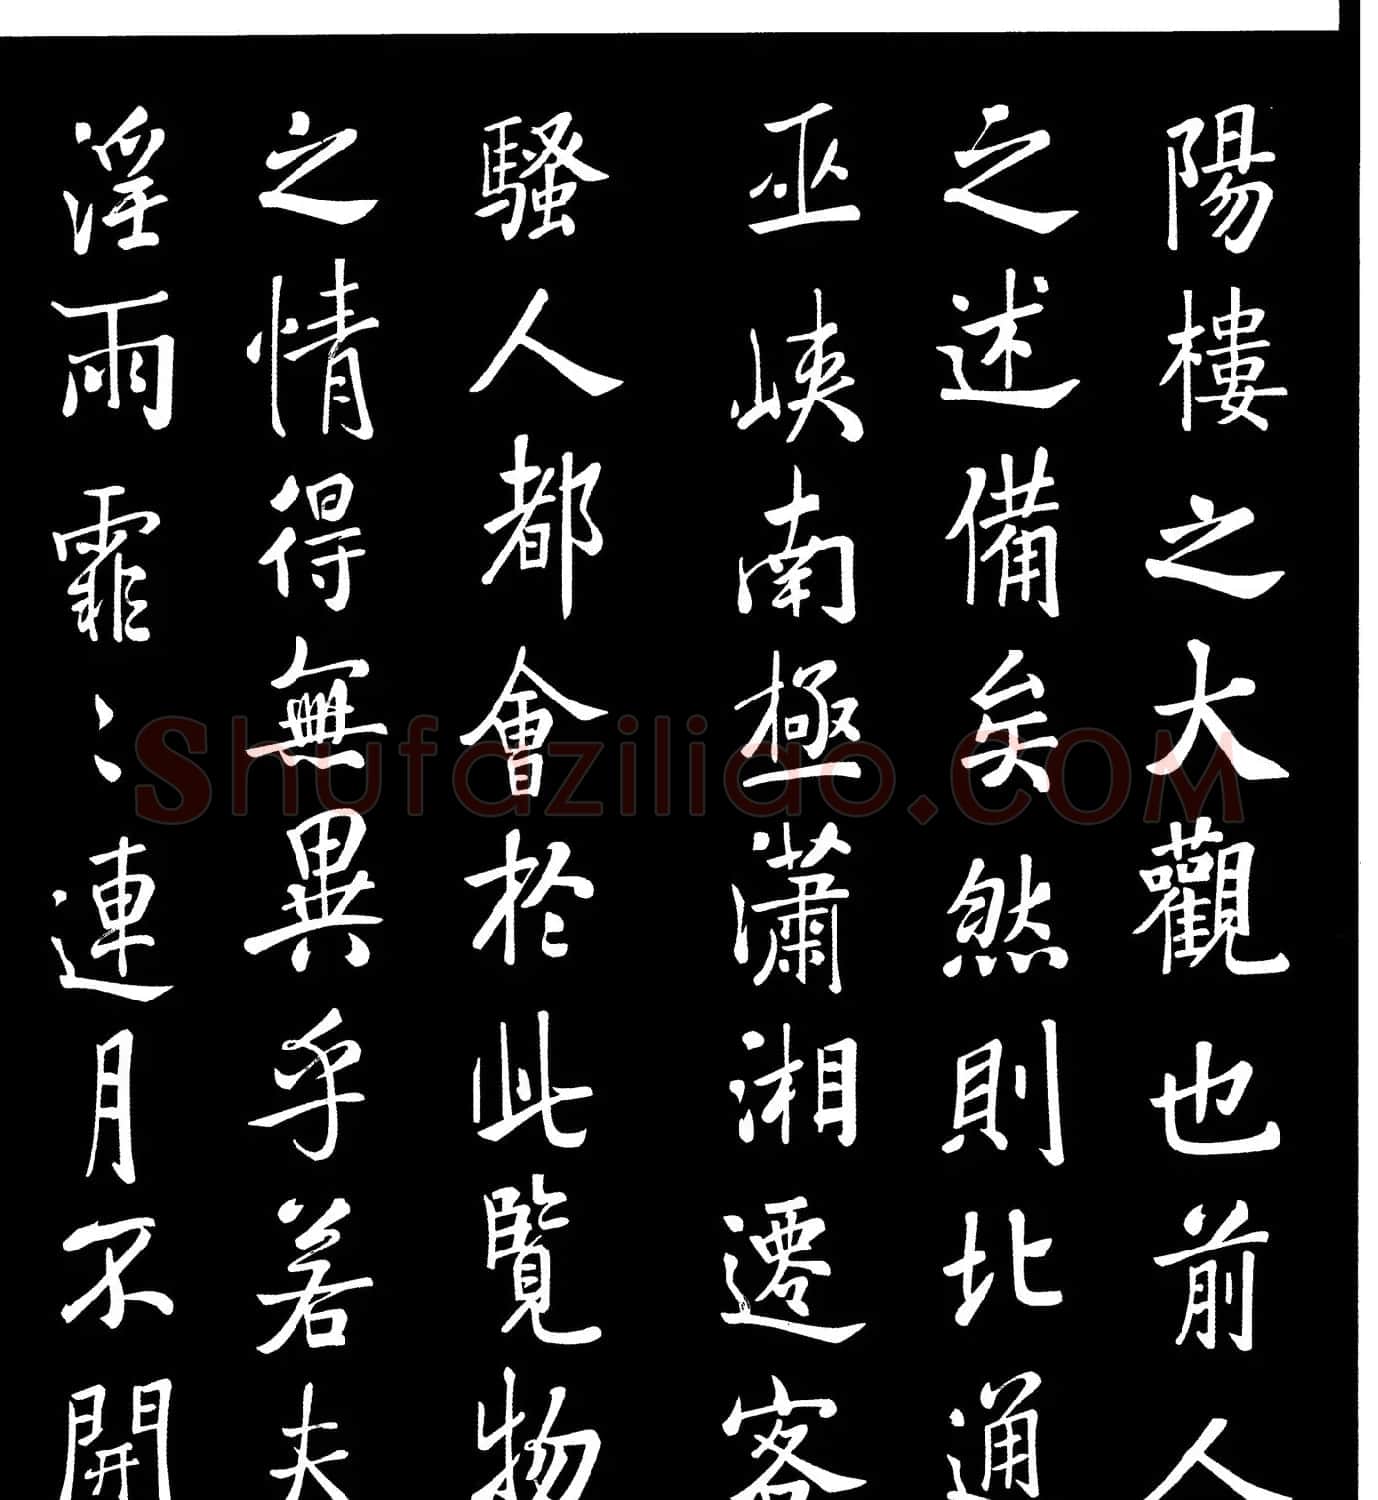 陽樓之大觀也前人
之述備矣然則北通
巫峽南極瀟湘遷客
騷人都會於此覽物
之情得無異乎若夫
淫雨霏〻連月不開
Shufaziliao.COM